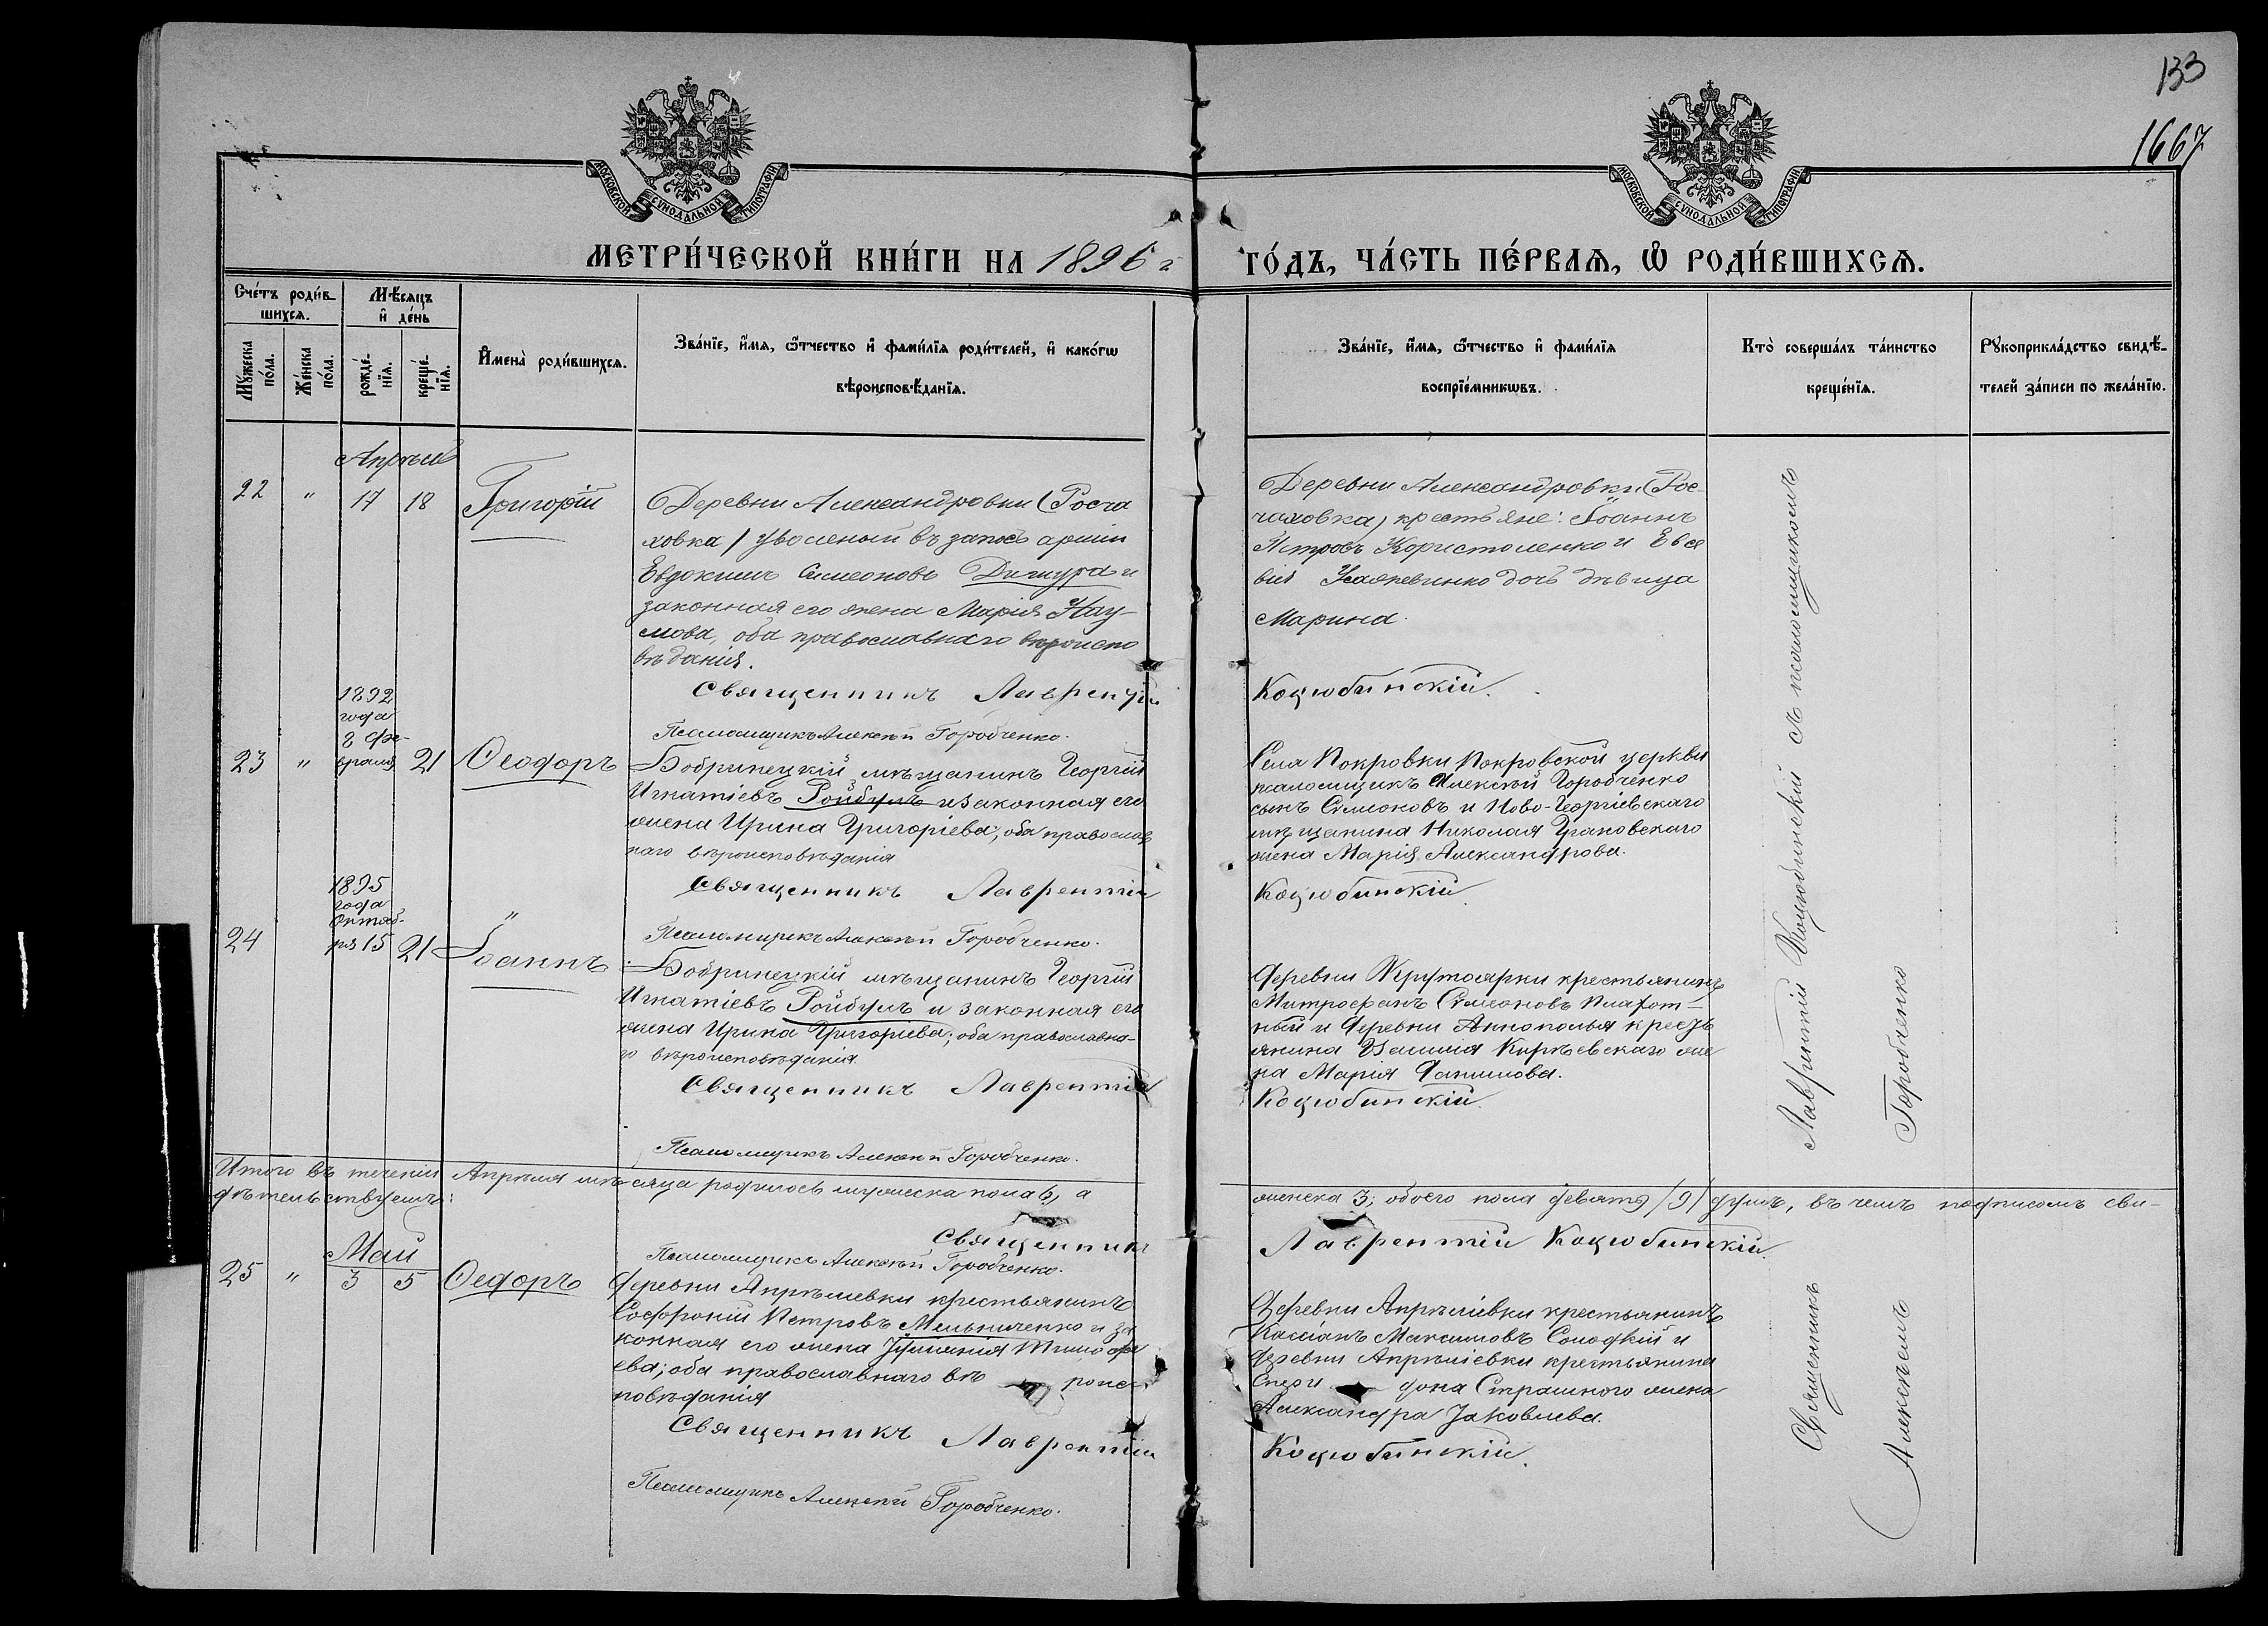 133
1667
МОСКОВСКОЙ СУНОДАЛЬНОЙ ТИПОГРАФІИ
МОСКОВСКОЙ СУНОДАЛЬНОЙ ТИПОГРАФІИ
МЕТРИ́ЧЕСКОЙ КНИ́ГИ НА 1896 г
ГО́ДЪ, ЧА́СТЬ ПЕ́РВАѦ, Ѡ РОДИ́ВШИХСѦ.
Сче́тъ роди́в-
шихсѧ.
Мѣ́сѧцъ
и де́нь
Мꙋ́жеска по́ла.
Же́нска по́ла.
рожде́-нїѧ.
креще́-нїѧ.
Имена̀ роди́вшихсѧ.
Зва́нїе, и́мѧ, ѻ́тчество и фами́лїѧ роди́телей, и како́гѡ
вѣроисповѣ́данїѧ.
Зва́нїе, и́мѧ, ѻ́тчество и фами́лїѧ
воспрїе́мникѡвъ.
Кто̀ соверша́лъ та́инство
креще́нїѧ.
Рꙋкоприкла́дство свидѣ́-
телей за́писи по жела́нїю.
Апрѣль
22 " 17 18 Григорій
Деревни Александровки (Росча
ховка) уволеный въ запасъ арміи
Евдокимъ Симеоновъ Дигпура и
законная его жена Марія Нау-
мова, оба православнаго вѣроиспо
вѣданія.
Священникъ Лаврентій
Псаломщикъ Алексѣй Горобченко.
Деревни Александровки (Рос-
чаховка) крестьяне: Іоаннъ
Петровъ Користоленко и Евсе
вія дочь дѣвица
Марина.
Коцюбинскій.
1892
года
8 фе-
враля
23 " 21 Ѳеодоръ
Бобринецкій мѣщанинъ Георгій
Игнатіевъ Ройбулъ и законная его
жена Ирина Григоріева, оба православ
наго вѣроисповѣданія
Священникъ Лаврентій
Псаломщикъ Алексѣй Горобченко.
Села Покровки Покровской церкви
псаломщикъ Алексѣй Горобченко
сынъ Симоновъ и Ново-Георгіевскаго
мѣщанина Николая Грановскаго
жена Марія Александрова.
Коцюбинскій
1895
года
Октяб-
ря 15
24 " 21 Іоаннъ
Бобринецкій мѣщанинъ Георгій
Игнатіевъ Ройбулъ и законная его
жена Ирина Григоріева; оба православна-
го вѣроисповѣданія
Священникъ Лаврентій
Псаломщикъ Алексѣй Горобченко.
Деревни Крутоярки крестьянинъ
Митрофанъ Симеоновъ Плахот-
ный и деревни Аннополья кресть
янина Киръевскаго же
на Марія Данилова.
Коцюбинскій.
Итого въ теченіи Апрѣля мѣсяца родилось мужеска пола 6, а
женска 3; обоего пола девять (9) душъ, въ чемъ подписомъ сви-
дѣтельствуемъ:
Священникъ
Лаврентій Коцюбинскій.
Псаломщикъ Алексѣй Горобченко.
Май
25 " 3 5 Ѳедоръ
Деревни Апрѣлевки крестьянинъ
Софроній Петровъ Мельниченко и за
конная его жена Іуліанія Тимофе
ева; оба православнаго вѣ роис-
повѣданія
Священникъ Лаврентій
Псаломщикъ Алексѣй Горобченко.
Деревни Апрѣліевки крестьянинъ
Кассіанъ Максимовъ Солодкій и
деревни Апрѣліевки крестьянина
Спери дона Страшного жена
Александра Іаковлева.
Коцюбинскій.
Священникъ Лаврентій Коцюбинскій съ псаломщикомъ
Алексѣемъ Горобченко